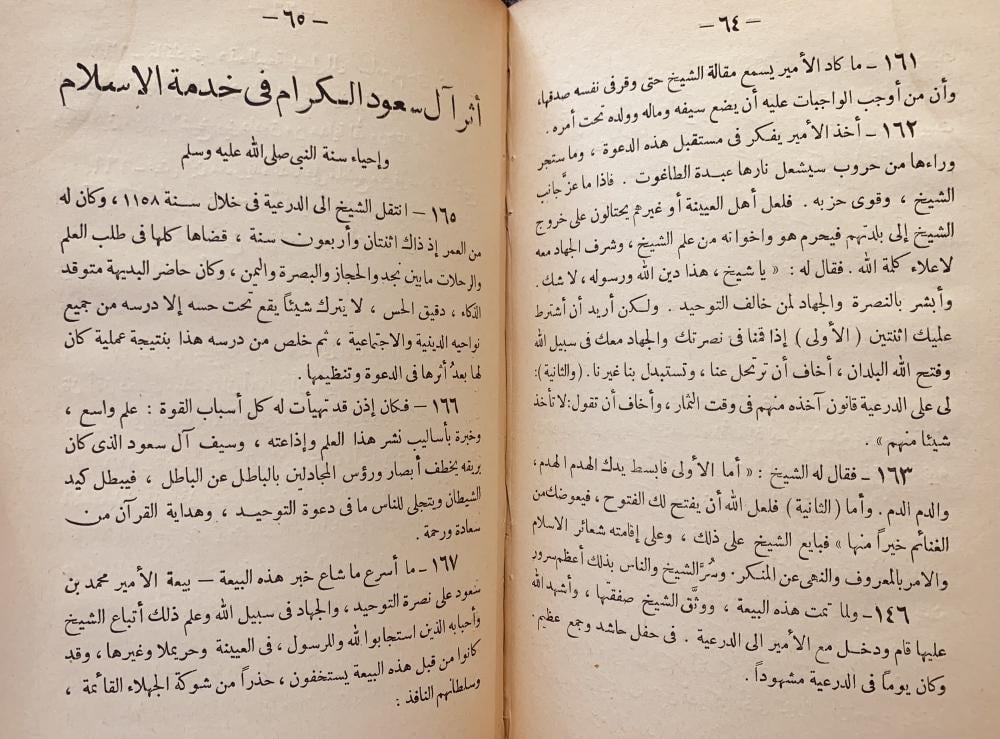 — ٦٤ —
١٦١ – ما كاد الأمير يسمع مقالة الشيخ حتى وقر فى نفسه صدقها،
وأن من أوجب الواجبات عليه أن يضع سيفه وماله وولده تحت أمره .
١٦٢ – أخذ الأمير يفكر فى مستقبل هذه الدعوة ، وما ستجر
وراءها من حروب سيشعل نارها عبدة الطاغوت . فاذا ما عزّ جانب
الشيخ ، وقوى حزبه . فلعل أهل العيينة أو غيرهم يحتالون على خروج
الشيخ إلى بلدتهم فيحرم هو واخوانه من علم الشيخ ، وشرف الجهاد معه
لاعلاء كلمة الله . فقال له : « يا شيخ ، هذا دين الله ورسوله ، لا شك .
وأبشر بالنصرة والجهاد لمن خالف التوحيد . ولكن أريد أن أشترط
عليك اثنتين ( الأولى ) إذا قمنا فى نصرتك والجهاد معك فى سبيل الله
وفتح الله البلدان ، أخاف أن ترتحل عنا ، وتستبدل بنا غيرنا . (والثانية) :
لى على الدرعية قانون آخذه منهم فى وقت الثمار ، وأخاف أن تقول: لا تأخذ
شيئا منهم » .
١٦٣ – فقال له الشيخ : « أما الأولى فابسط يدك الهدم الهدم ،
والدم الدم . وأما ( الثانية ) فلعل الله أن يفتح لك الفتوح ، فيعوضك من
الغنائم خيراً منها » فبايع الشيخ على ذلك ، وعلى إقامته شعائر الاسلام
والامر بالمعروف والنهى عن المنكر . وسُرَّ الشيخ والناس بذلك أعظم سرور
١٤٦ – ولما تمت هذه البيعة ، ووثَّق الشيخ صفقتها ، وأشهد الله
عليها قام ودخل مع الأمير الى الدرعية . فى حفل حاشد وجمع عظيم .
وكان يوماً فى الدرعية مشهوداً .
— ٦٥ —
أثر آل سعود الكرام فى خدمة الاسلام
وإحياء سنة النبى صلى الله عليه وسلم
١٦٥ – انتقل الشيخ الى الدرعية فى خلال سنة ١١٥٨ ، وكان له
من العمر إذ ذاك اثنتان وأربعون سنة ، قضاها كلها فى طلب العلم
والرحلات ما بين نجد والحجاز والبصرة واليمن ، وكان حاضر البديهة متوقد
الذكاء ، دقيق الحس ، لا يترك شيئاً يقع تحت حسه إلا درسه من جميع
نواحيه الدينية والاجتماعية ، ثم خلص من درسه هذا بنتيجة عملية كان
لها بعدُ أثرها فى الدعوة وتنظيمها .
١٦٦ – فكان إذن قد تهيأت له كل أسباب القوة : علم واسع ،
وخبرة بأساليب نشر هذا العلم وإذاعته ، وسيف آل سعود الذى كان
بريقه يخطف أبصار ورؤس المجادلين بالباطل عن الباطل ، فيبطل كيد
الشيطان ويتجلى للناس ما فى دعوة التوحيد ، وهداية القرآن من
سعادة ورحمة .
١٦٧ – ما أسرع ما شاع خبر هذه البيعة – بيعة الأمير محمد بن
سعود على نصرة التوحيد ، والجهاد فى سبيل الله وعلم ذلك أتباع الشيخ
وأحبابه الذين استجابوا لله والرسول ، فى العيينة وحريملا وغيرها ، وقد
كانوا من قبل هذه البيعة يستخفون ، حذراً من شوكة الجهلاء القائمة ،
وسلطانهم النافذ :